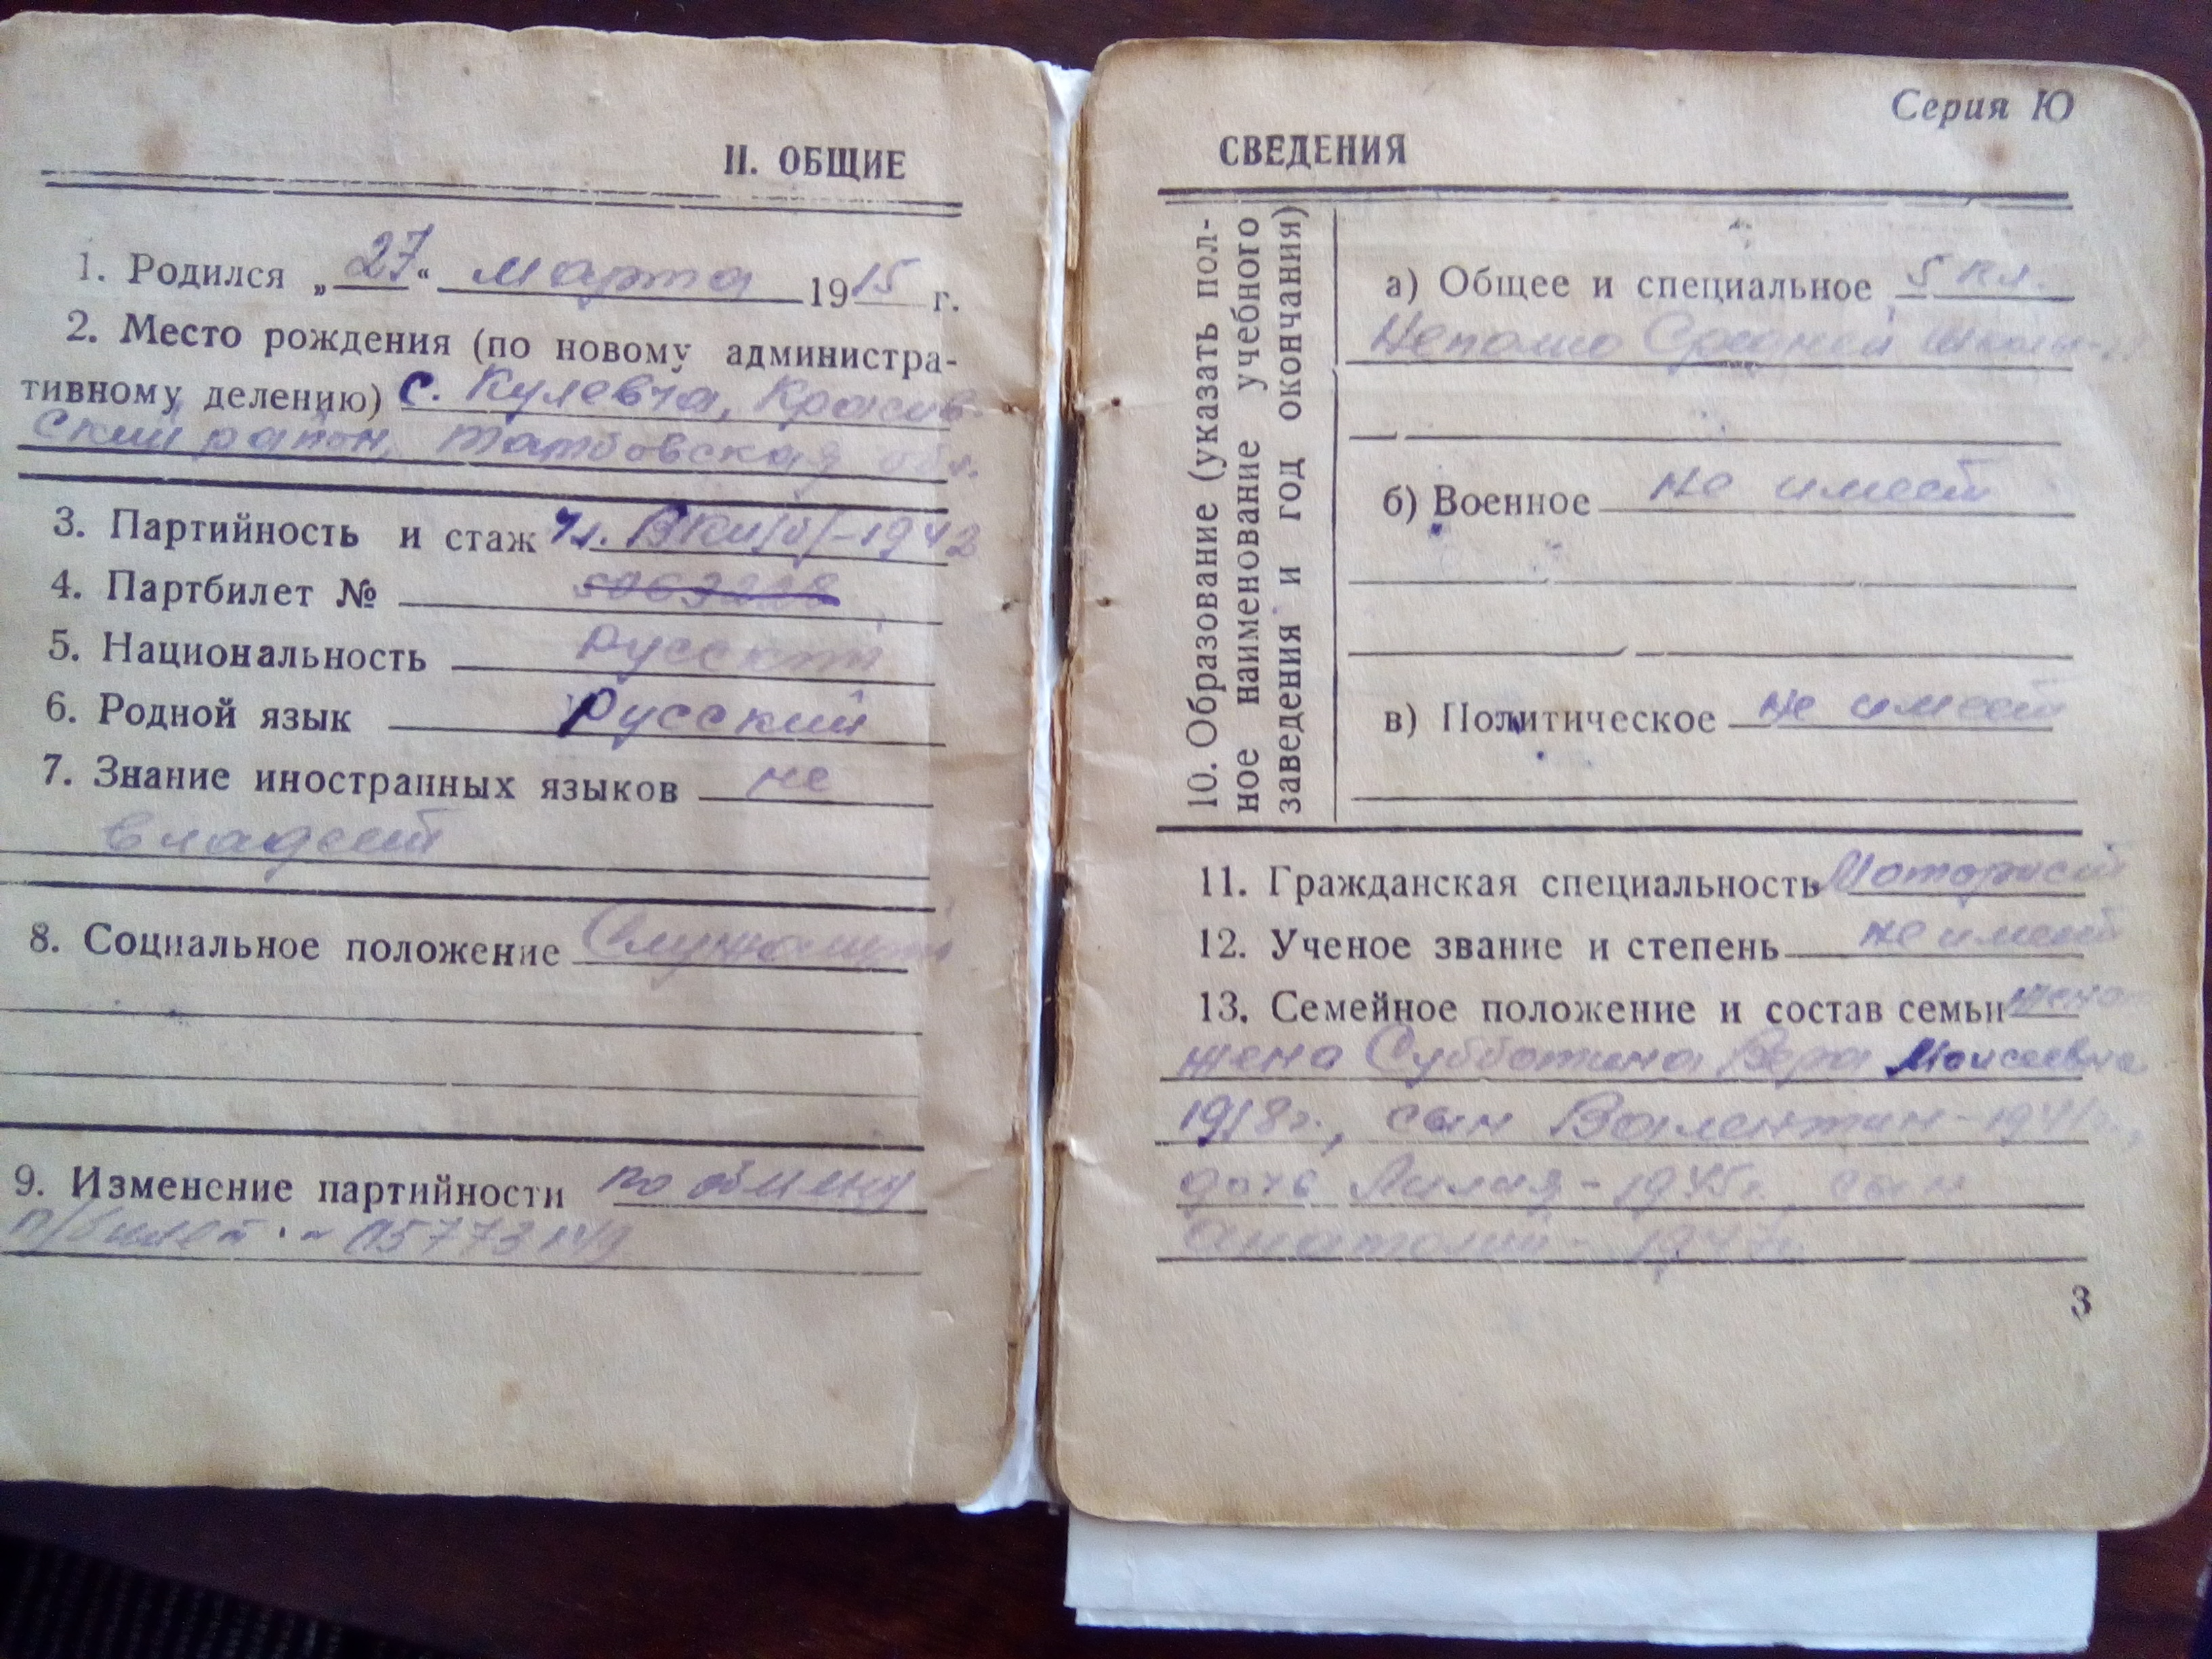 II. ОБЩИЕ
1. Родился „27“ марта 1915 г.
2. Место рождения (по новому администра-
тивному делению) с. Кулевча,
ский район, Тамбовская обл.
3. Партийность и стаж чл. ВКП/б/-1942
4. Партбилет № 5063228
5. Национальность русский
6. Родной язык Русский
7. Знание иностранных языков не
владеет
8. Социальное положение Служащий
9. Изменение партийности по обмену
п/билет
Серия Ю
СВЕДЕНИЯ
10. Образование (указать пол-
ное наименование учебного
заведения и год окончания)
а) Общее и специальное 5 кл.
Неполно Средней Школы
б) Военное не имеет
в) Политическое не имеет
11. Гражданская специальность Моторист
12. Ученое звание и степень не имеет
13. Семейное положение и состав семьи
жена Субботина Вера Моисеевна
1918г., сын Валентин-1941г.,
дочь Лилия-1945г. сын
Анатолий-1947г.
3